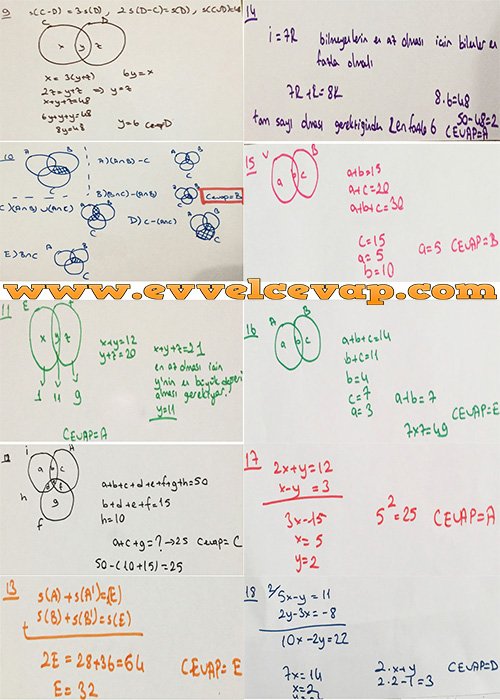 9
s(C-D)=3s(D), 2s(D-C)=s(D), s(CUD)=48
C D
x y z
x = 3(y+z) 6y=x
2z=y+z ⇒ y=z
x+y+z=48
6y+y+y=48
8y=48 y=6 Cevap D
10
A B
C
A) (A∩B) - C
A B
C
B) (B∩C)-(A∩B)
A B
C
Cevap=B
C) (A∩B) ∪ (A∩C)
A B
C
D) C-(A∩C)
A B
C
E) B∩C
A B
C
www.evvelcevap.com
11
E
x y z
x+y=12
y+z=20
x+y+z=21
en az olması için
y'nin en büyük değeri
alması gerekiyor.
y=11
1 11 9
CEVAP=A
i A
a b c
d e f
g
h
f
a+b+c+d+e+f+g+h=50
b+d+e+f=15
h=10
a+c+g=? →25 Cevap= C
50-(10+15)=25
13
s(A)+s(A')=(E)
s(B)+s(B')=s(E)
2E=28+36=64
E=32
CEVAP= E
14
i=7R bilmeyenlerin en az olması için bilenler en
fazla olmalı
8.6=48
tam sayı olması gerektiğinden 2 en fazla 6 50-48=2
CEVAP=A
15
B
a b c
a+b=15
a+c=20
a+b+c=30
c=15
a=5
b=10
a=5 CEVAP=B
16
A B
a b c
a+b+c=14
b+c=11
b=4
c=7
a=3
a+b=7
7x7=49
CEVAP=E
17
2x+y=12
x-y=3
3x=15
x=5
y=2
5²=25 CEVAP=A
18
2/ 5x-y=11
2y-3x=-8
10x-2y=22
7x=14
x=2
2.x+y
2.2-1=3
CEVAP=D